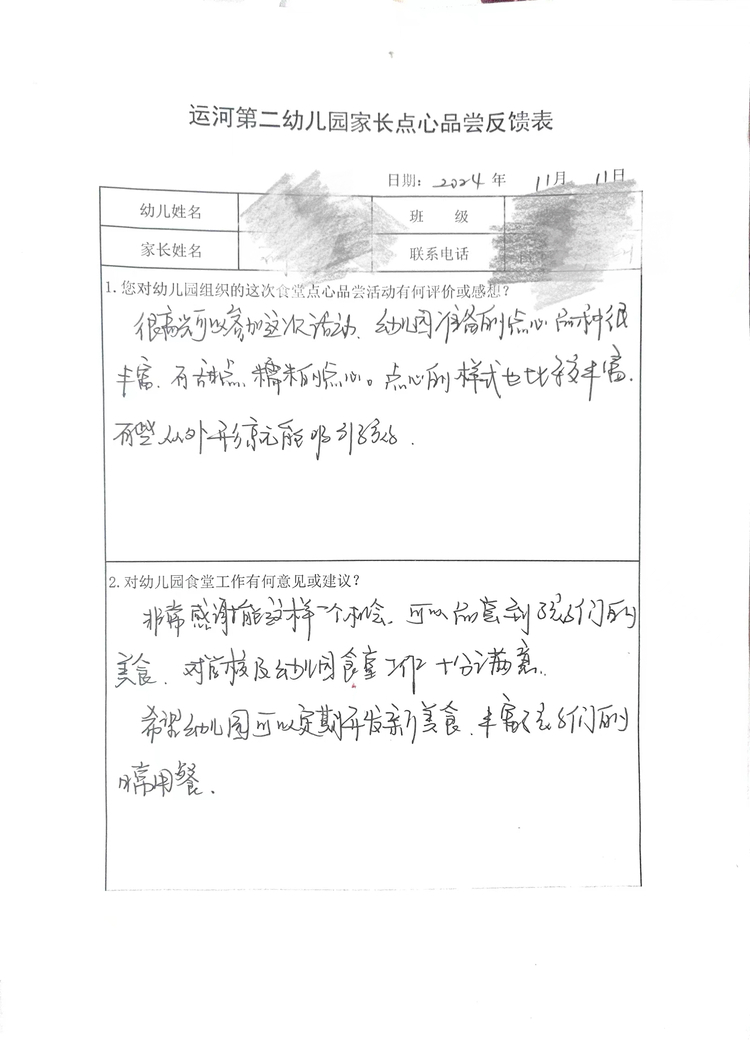 运河第二幼儿园家长点心品尝反馈表
日期：2024 年 11月 11日
幼儿姓名 班 级
家长姓名 联系电话
1.您对幼儿园组织的这次食堂点心品尝活动有何评价或感想？
很高兴可以参加这次活动、幼儿园准备的点心品种很
丰富、有甜点、糯米的点心。点心的样式也比较丰富、
有些从外形就能吸引孩子.
2.对幼儿园食堂工作有何意见或建议？
非常感谢能这样一个机会、可以品尝到孩子们的
美食、对学校及幼儿园食堂工作十分满意.
希望幼儿园可以定期开发新美食、丰富孩子们的
日常用餐.